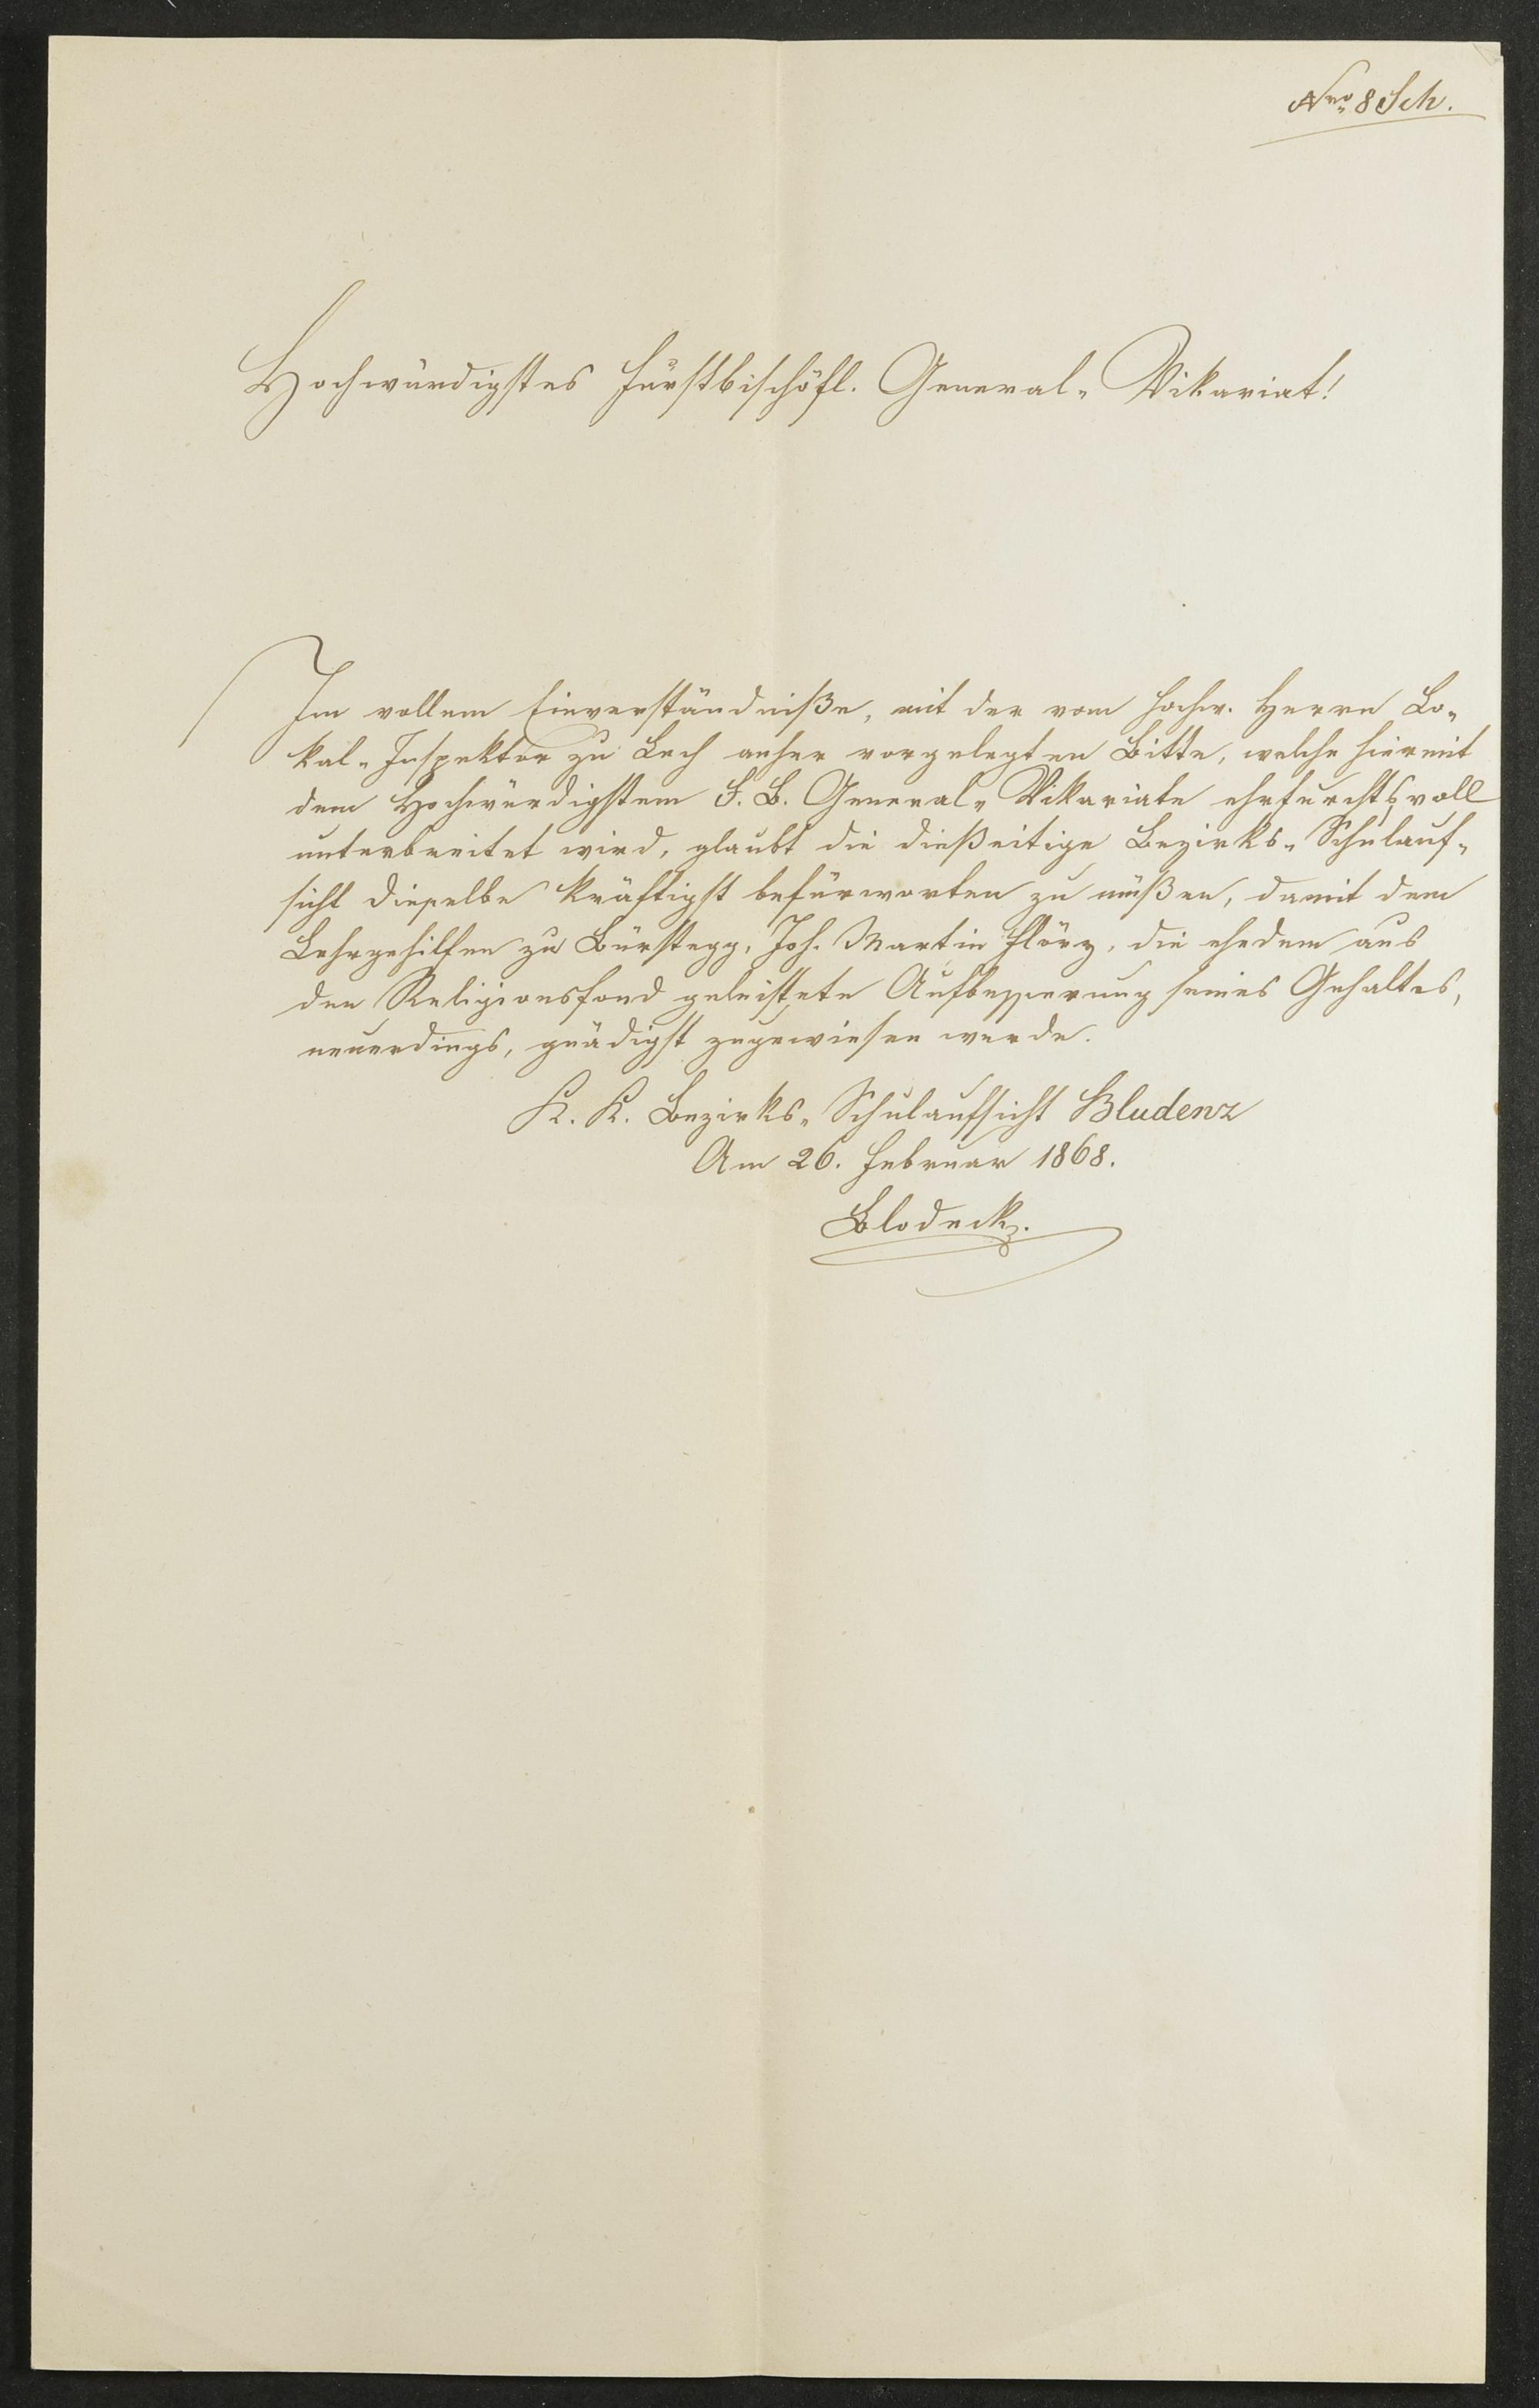 Nro. 8 Sch.
Hochwürdigstes Fürstbischöfl. General-Vikariat!
Im vollem Einverständniße, mit der vom hochw. Herrn Lo-
kal-Inspektor zu Lech anher vorgelegten Bitte, welche hiermit
dem Hochwürdigstem F. B. General-Vikariate ehrfurchtsvoll
unterbreitet wird, glaubt die dießeitige Bezirks-Schulauf-
sicht dieselbe kräftigst befürworten zu müßen, damit dem
Lehrgehilfen zu Bürstegg, Joh. Martin Flörz, die ehedem aus
den Religionsfond geleistete Aufbesserung seines Gehaltes,
neuerdings, gnädigst zugewiesen werde.
K. K. Bezirks-Schulaufsicht Bludenz
Am 26. Februar 1868.
Blodeck.